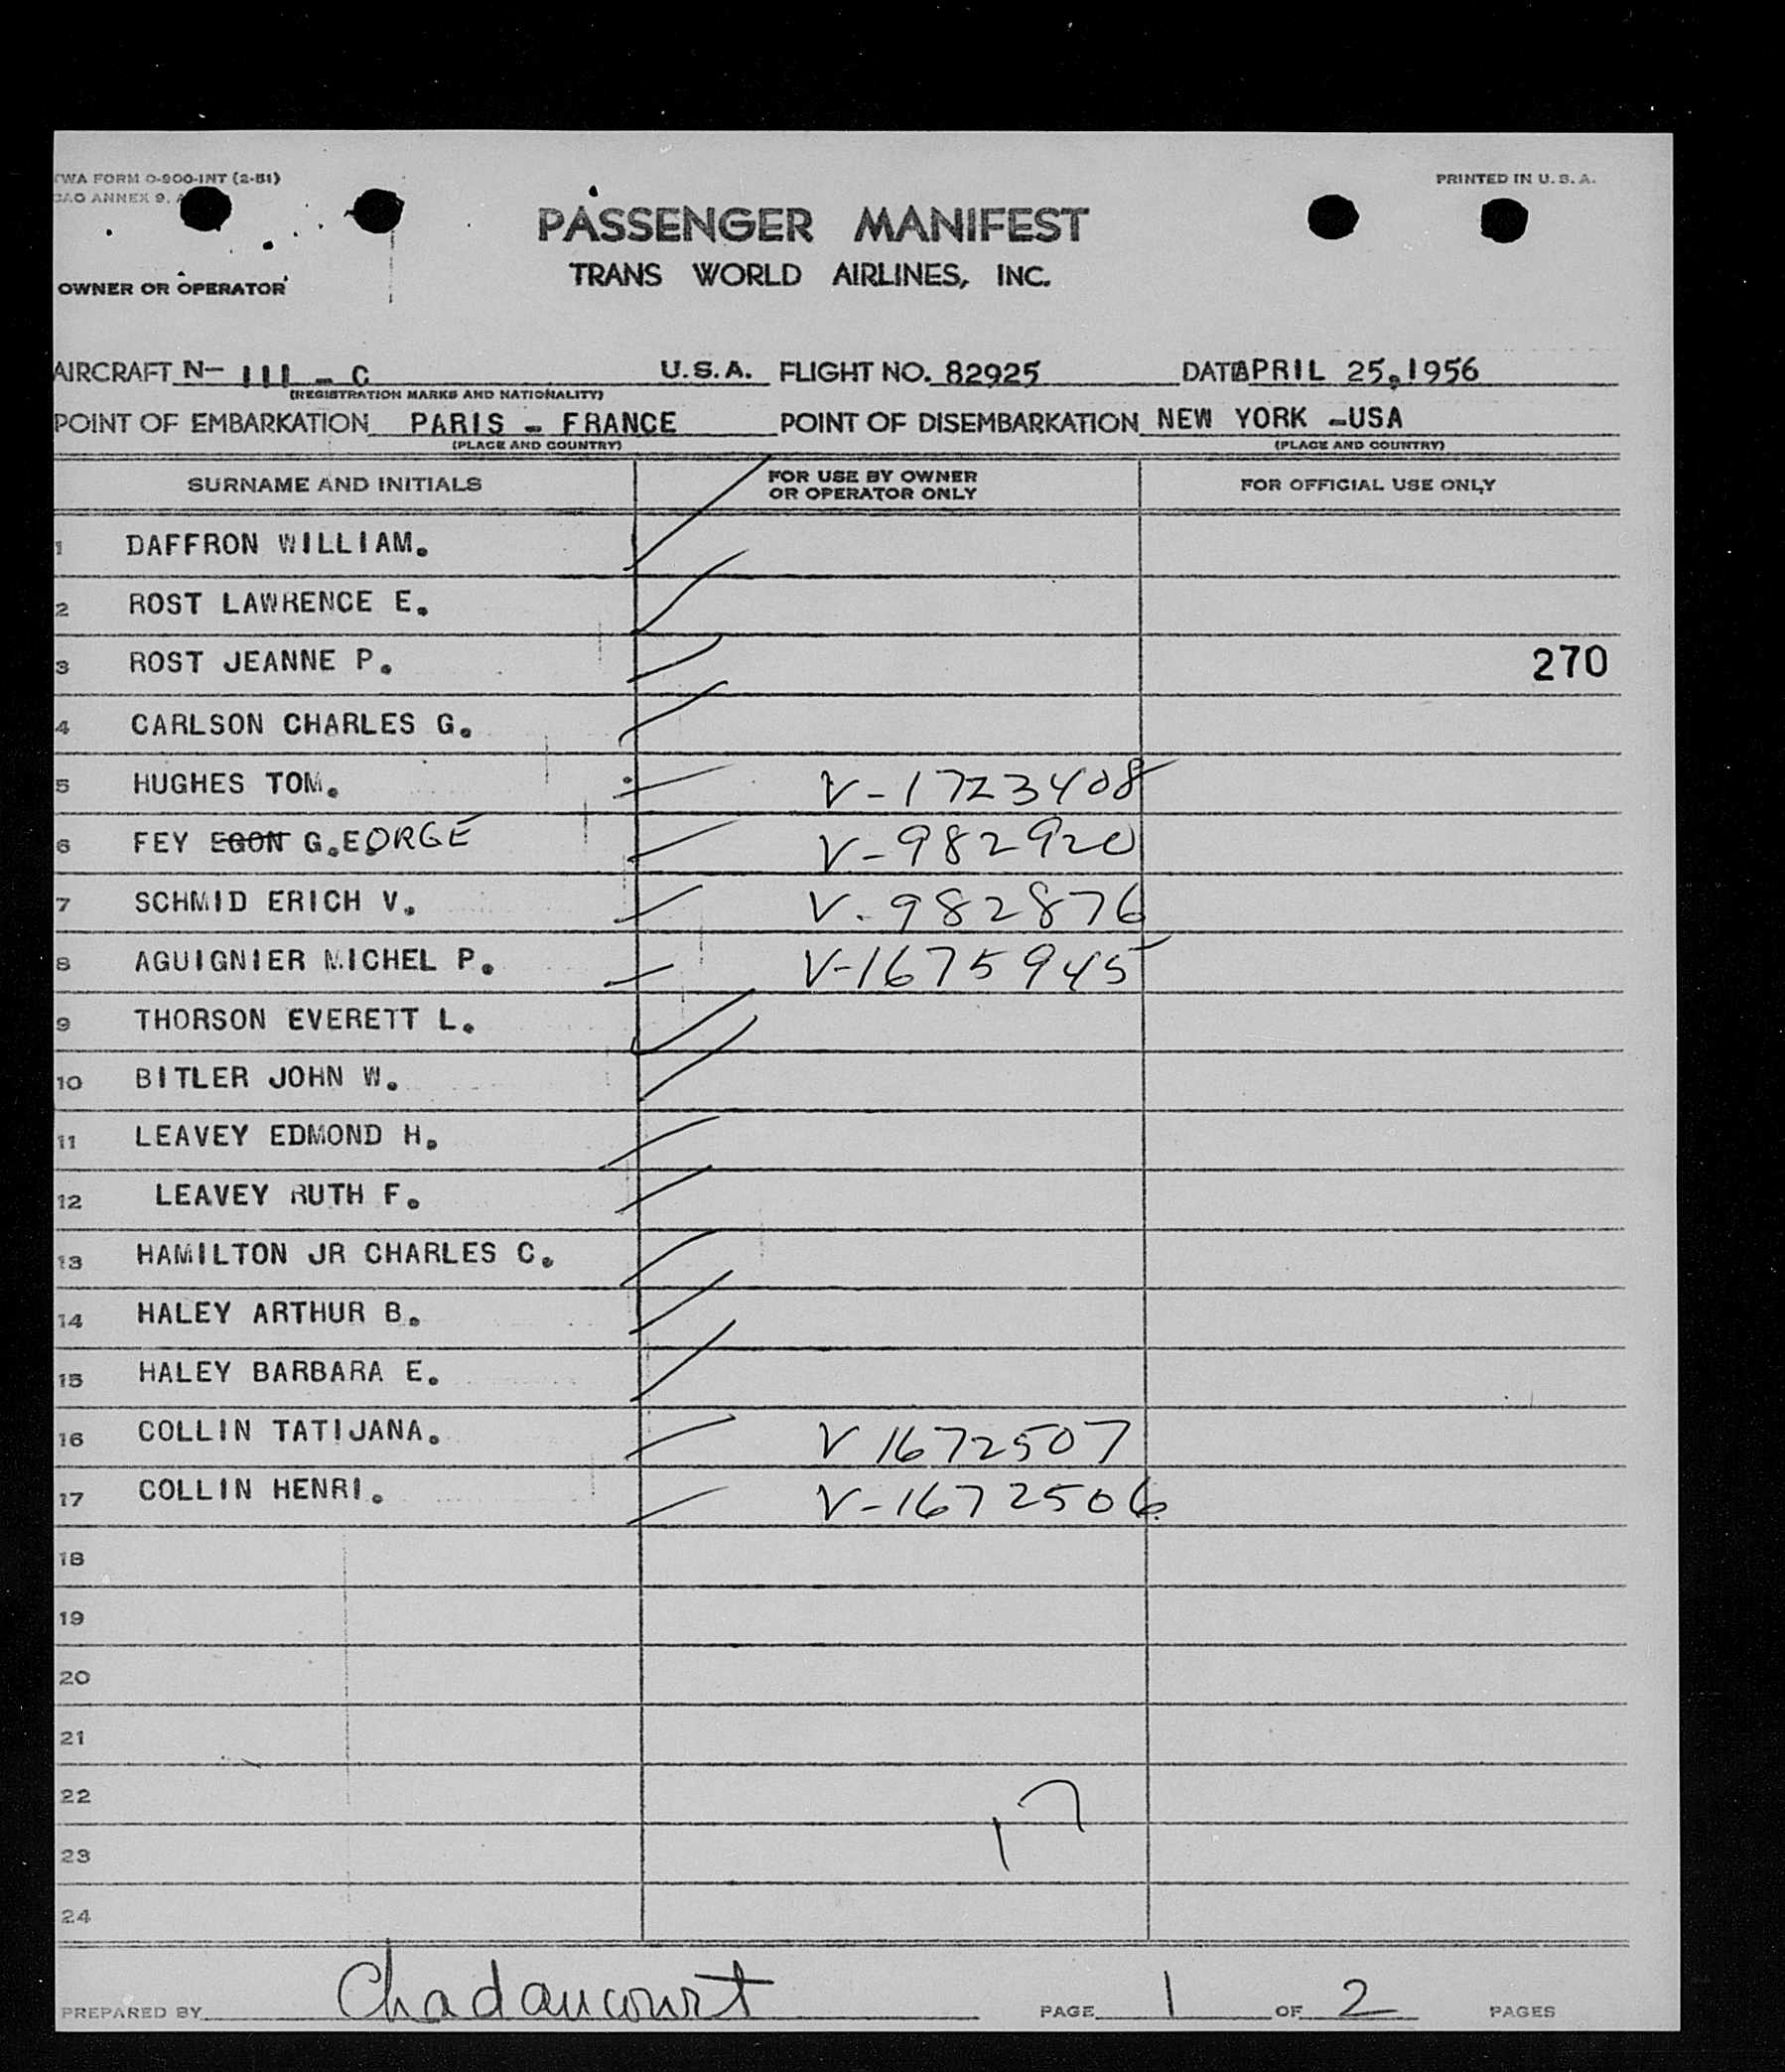 TWA FORM O-900-INT (2-51)
PRINTED IN U.S.A.
ICAO ANNEX 9, A
PASSENGER MANIFEST
TRANS WORLD AIRLINES, INC.
OWNER OR OPERATOR
AIRCRAFT N- 111 - C U.S.A. FLIGHT NO. 82925 DATE APRIL 25,1956
(REGISTRATION MARKS AND NATIONALITY)
POINT OF EMBARKATION PARIS - FRANCE POINT OF DISEMBARKATION NEW YORK -USA
(PLACE AND COUNTRY) (PLACE AND COUNTRY)
SURNAME AND INITIALS FOR USE BY OWNER OR OPERATOR ONLY FOR OFFICIAL USE ONLY
1 DAFFRON WILLIAM.
2 ROST LAWRENCE E.
3 ROST JEANNE P. 270
4 CARLSON CHARLES G.
5 HUGHES TOM. V-1723408
6 FEY EGON G.EORGE V-982920
7 SCHMID ERICH V. V-982876
8 AGUIGNIER MICHEL P. V-1675945
9 THORSON EVERETT L.
10 BITLER JOHN W.
11 LEAVEY EDMOND H.
12 LEAVEY RUTH F.
13 HAMILTON JR CHARLES C.
14 HALEY ARTHUR B.
15 HALEY BARBARA E.
16 COLLIN TATIJANA. V 1672507
17 COLLIN HENRI. V-1672506
18
19
20
21
22
23
24
17
PREPARED BY Chadaucourt PAGE 1 OF 2 PAGES